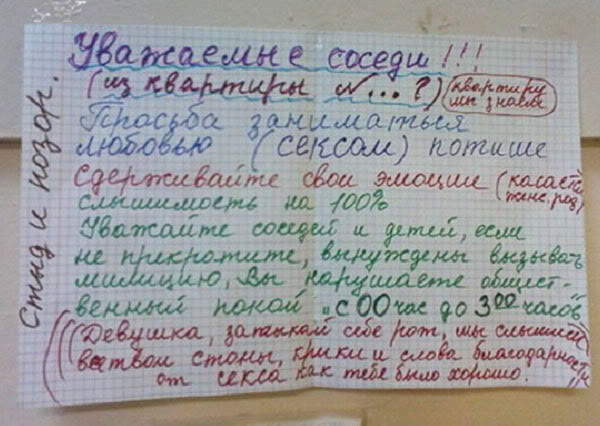 Стыд и позор.
Уважаемые соседи!!!
(из квартиры №...?) (квартиру мы знаем)
Просьба заниматься
любовью (сексом) потише
Сдерживайте свои эмоции (касается женс. род)
слышимость на 100%
Уважайте соседей и детей, если
не прекротите, вынуждены вызывать
милицию, Вы нарушаете общест-
венный покой "с 00 час до 3 00 часов"
Девушка, затыкай себе рот, мы слышим
все твои стоны, крики и слова благодарности
от секса как тебе было хорошо.